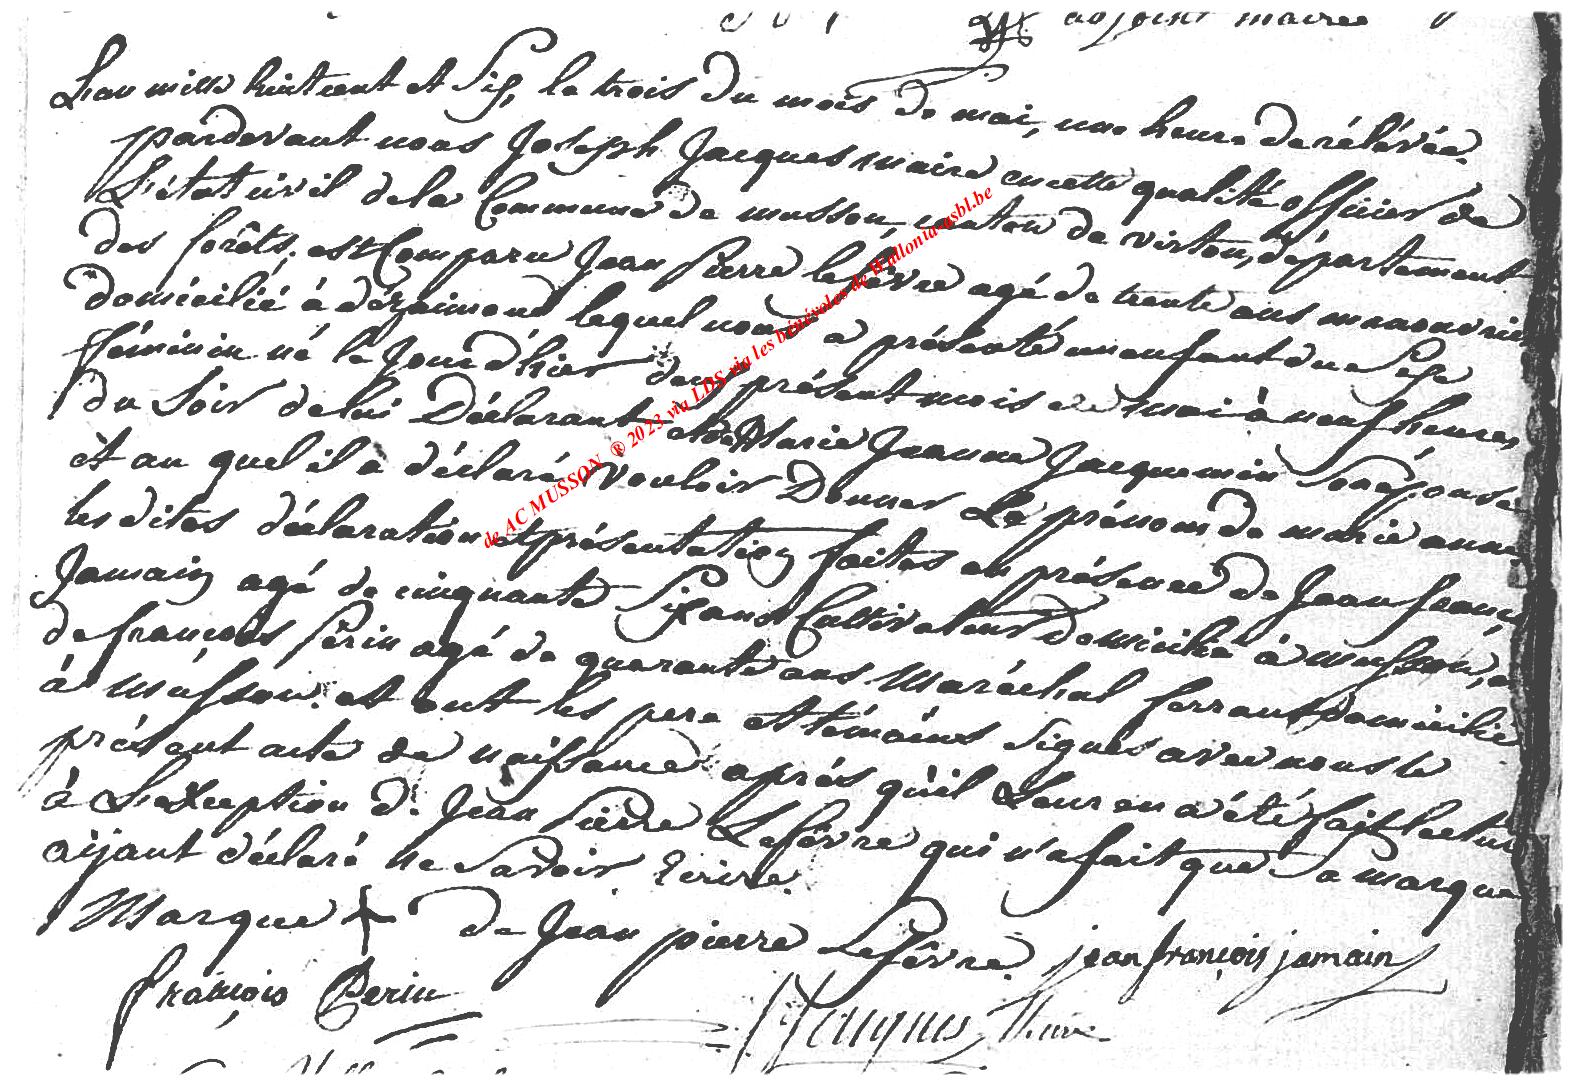 adjoint maire
L'an mille huit cent et Six, le trois du mois de mai, une heure de rélévée
pardevant nous Joseph Jacques maire en cette qualité officier de
L'état civil de la Commune de musson, canton de virton, département
des forêts, est Comparu Jean Pierre lefèvre agé de trente ans manouvrier
domicilié à lequel nous a présenté un enfant du Sexe
féminin né le Jour d'hier deux présent mois de mai à neuf heures
du Soir de lui Déclarant et de Marie Jeanne Jacquemin Son épouse
et au quel il a déclaré vouloir Donner Le prénom de marie anne
les dites déclaration et présentation faites en présence de Jean françois
Jamain agé de cinquante Six ans Cultivateur domicilié à musson, et
de françois Perin agé de quarante ans Maréchal ferrant domicilié
à musson. et ont les pere et témoins signés avec nous le
présent acte de naissance après qu'il Leur en a été fait lecture
à L'exception de Jean Pierre Lefèvre qui n'a fait que Sa marque
aijant déclaré ne Savoir Ecrire.
Marque + de Jean pierre Lefêvre. jean françois jamain
françois Perin
Jacques Maire
de AC MUSSON ® 2023 via LDS via les bénévoles de Wallonia-asbl.be